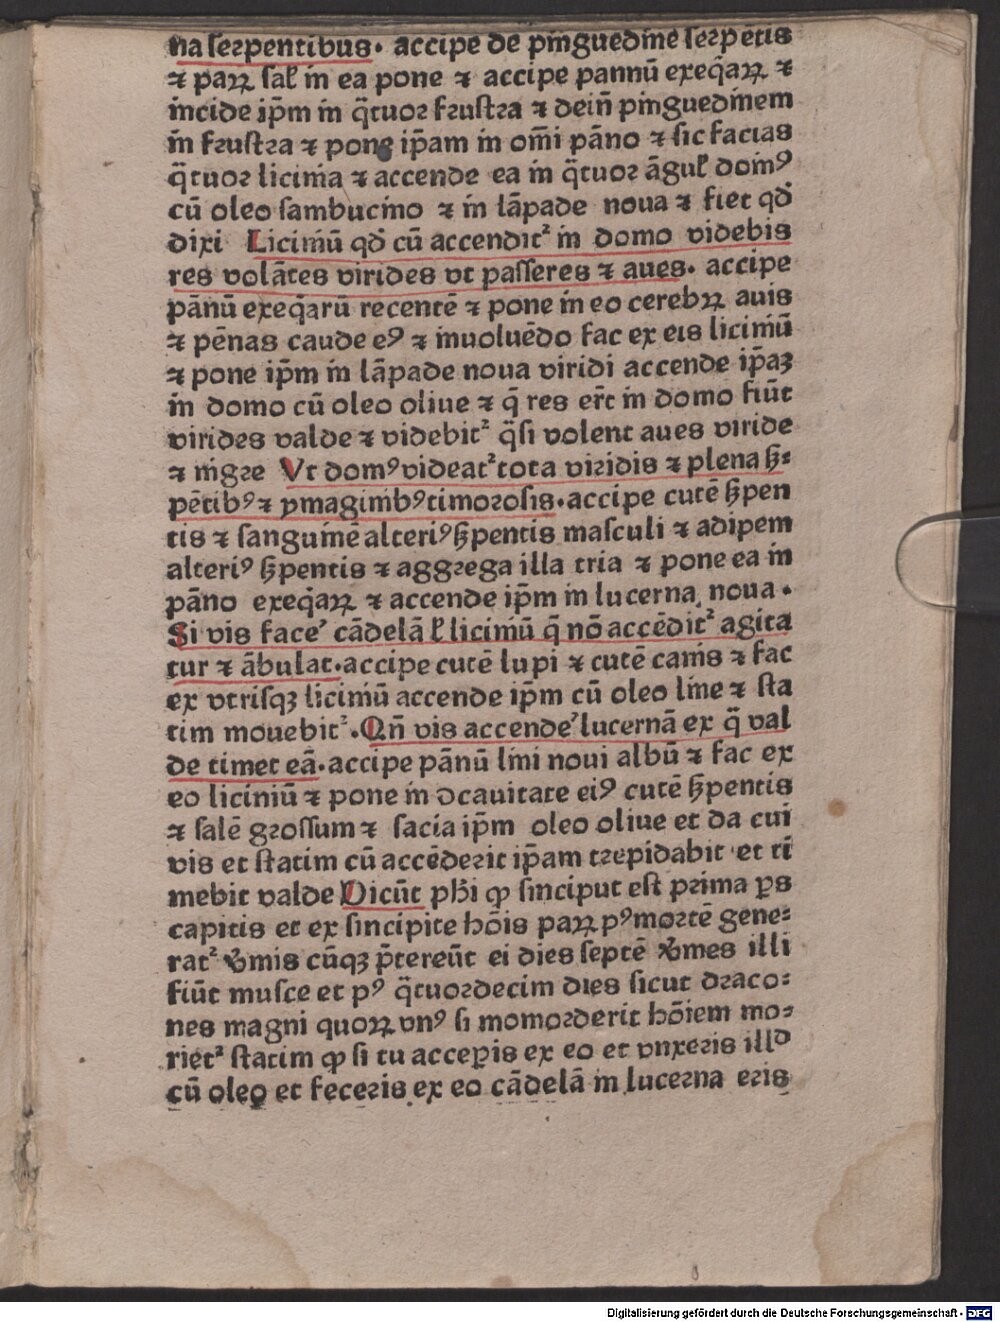 na serpentibus. accipe de pinguedine serpētis
⁊ parꝝ sal̄ in ea pone ⁊ accipe pannū exeq̄arꝝ ⁊
incide ip̄m in q̄tuor frustra ⁊ dein̄ pinguedinem
in frustra ⁊ pone ip̄am in om̄i pāno ⁊ sic facias
q̄tuor licinia ⁊ accende ea in q̄tuor āgul̄ domꝰ
cū oleo sambucino ⁊ in lāpade noua ⁊ fiet qd̄
dixi Liciniū qd̄ cū accendit᷑ in domo videbis
res volātes virides vt passeres ⁊ aues. accipe
pānū exeq̄arū recentē ⁊ pone in eo cerebꝝ auis
⁊ pēnas caude eꝰ ⁊ inuoluēdo fac ex eis liciniū
⁊ pone ip̄m in lāpade noua viridi accende ip̄aꝫ
in domo cū oleo oliue ⁊ q̄ res er̄t in domo fiūt
virides valde ⁊ videbit᷑ q̄si volent aues viride
⁊ nigre Vt domꝰ videat᷑ tota viridis ⁊ plena ẜ⸗
pētibꝰ ⁊ ꝑmaginibꝰ timorosis. accipe cutē ẜpen
tis ⁊ sanguinē alteriꝰ ẜpentis masculi ⁊ adipem
alteriꝰ ẜpentis ⁊ aggrega illa tria ⁊ pone ea in
pāno exeq̄arꝝ ⁊ accende ip̄m in lucerna noua.
Si vis face᷑ cādelā ł liciniū q̄ nō accēdit᷑ agita
tur ⁊ ābulat. accipe cutē lupi ⁊ cutē canis ⁊ fac
ex vtrisqꝫ liciniū accende ip̄m cū oleo line ⁊ sta
tim mouebit᷑. Qn̄ vis accende᷑ lucernā ex q̄ val
de timet eā. accipe pānū lini noui albū ⁊ fac ex
eo liciniū ⁊ pone in ꝯcauitate eiꝰ cutē ẜpentis
⁊ salē grossum ⁊ sacia ip̄m oleo oliue et da cui
vis et statim cū accēderit ip̄am trepidabit et ti
mebit valde Dicūt phi̅ ꝙ sinciput est prima ꝑs
capitis et ex sincipite hōis parꝝ pꝰ mortē gene⸗
rat᷑ v̓mis cūqꝫ p̄tereūt ei dies septē v̓mes illi
fiūt musce et pꝰ q̄tuordecim dies sicut draco⸗
nes magni quoꝝ vnꝰ si momorderit hōiem mo⸗
riet᷑ statim ꝙ si tu acceꝑis ex eo et vnxeris illᵈ
cū oleo et feceris ex eo cādelā in lucerna eris
Digitalisierung gefördert durch die Deutsche Forschungsgemeinschaft - DFG